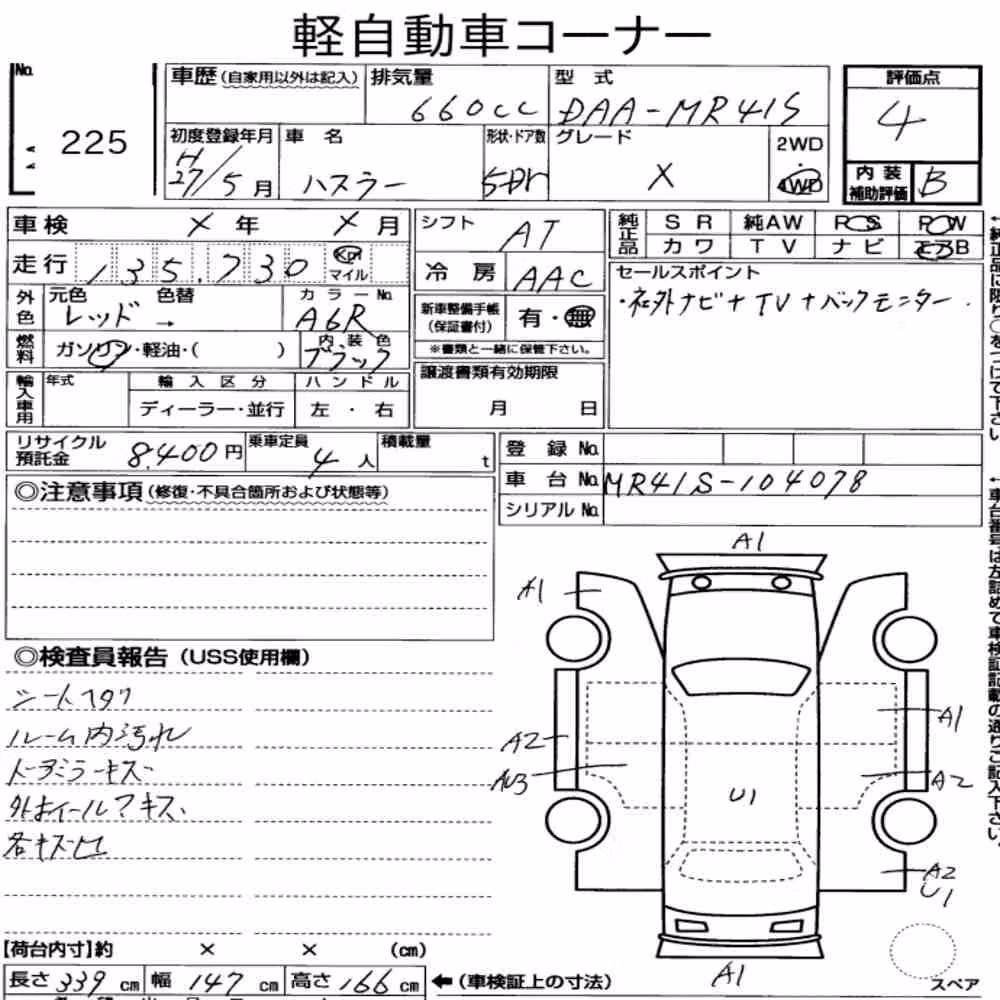 軽自動車コーナー
No.
225
車歴(自家用以外は記入)
排気量
660cc
型式
DAA-MR41S
評価点
4
初度登録年月
H27/5月
車名
ハスラー
形状・ドア数
5Dr
グレード
X
2WD
・
4WD
内装補助評価
B
車検
X年
X月
シフト
AT
純正品
SR
純AW
PS
PW
カワ
TV
ナビ
エアB
走行
135,730
Km
マイル
冷房
AAC
セールスポイント
・社外ナビ+TV+バックモニター.
外色
元色
レッド
色替
→
カラーNo.
A6R
新車整備手帳
(保証書付)
有・無
※書類と一緒に保管下さい。
燃料
ガソリン・軽油・( )
内装色
ブラック
輸入車用
年式
輸入区分
ディーラー・並行
ハンドル
左・右
譲渡書類有効期限
月 日
リサイクル預託金
8,400円
乗車定員
4人
積載量
t
登録No.
車台No.
MR41S-104078
シリアルNo.
◎注意事項(修復・不具合箇所および状態等)
◎検査員報告(USS使用欄)
ルーム内汚れ
ドアミラーキズ
外ホイールマキズ
A1
A1
A1
A2
AU3
A2
U1
A2
U1
A1
スペア
【荷台内寸】約 × × (cm)
長さ339cm
幅147cm
高さ166cm
←(車検証上の寸法)